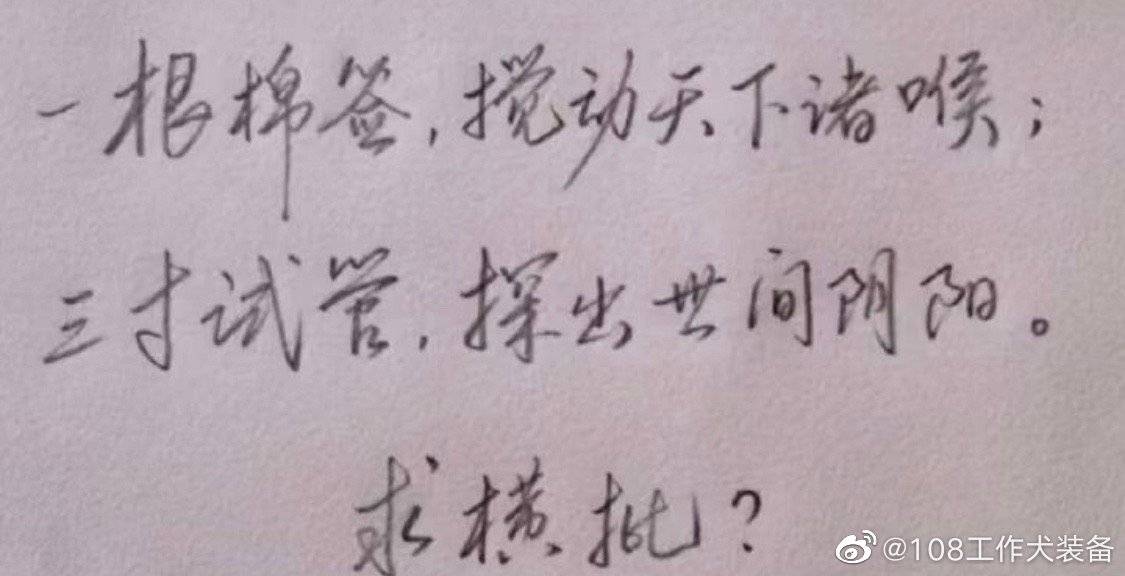 一根棉签,搅动天下诸喉;
三寸试管,探出世间阴阳。
求横批?
@108工作犬装备